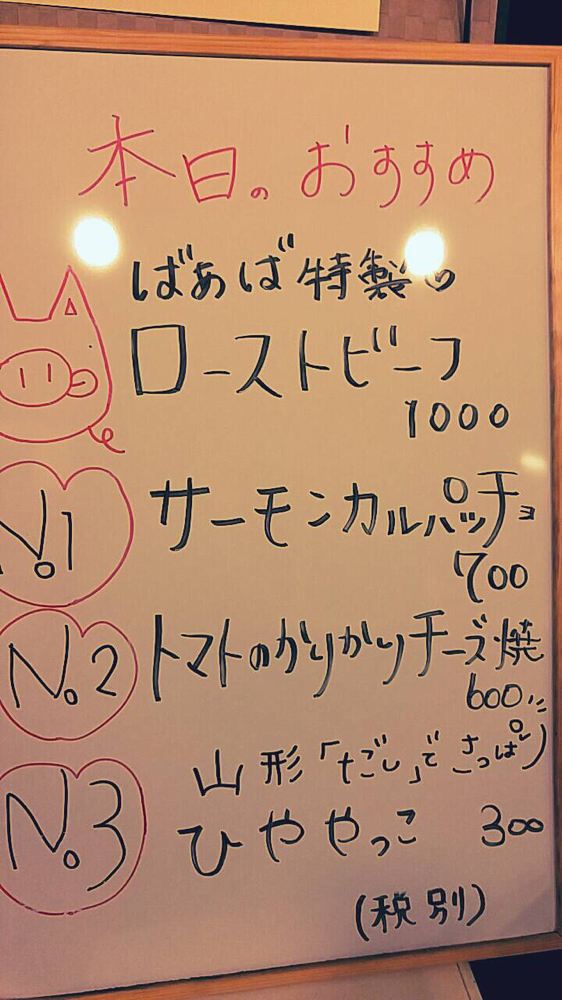 本日のおすすめ
ばぁば特製♡
ローストビーフ
1000
No.1
サーモンカルパッチョ
700
No.2
トマトのかりかりチーズ焼
600
No.3
山形「だし」でさっぱり
ひややっこ 300
(税別)